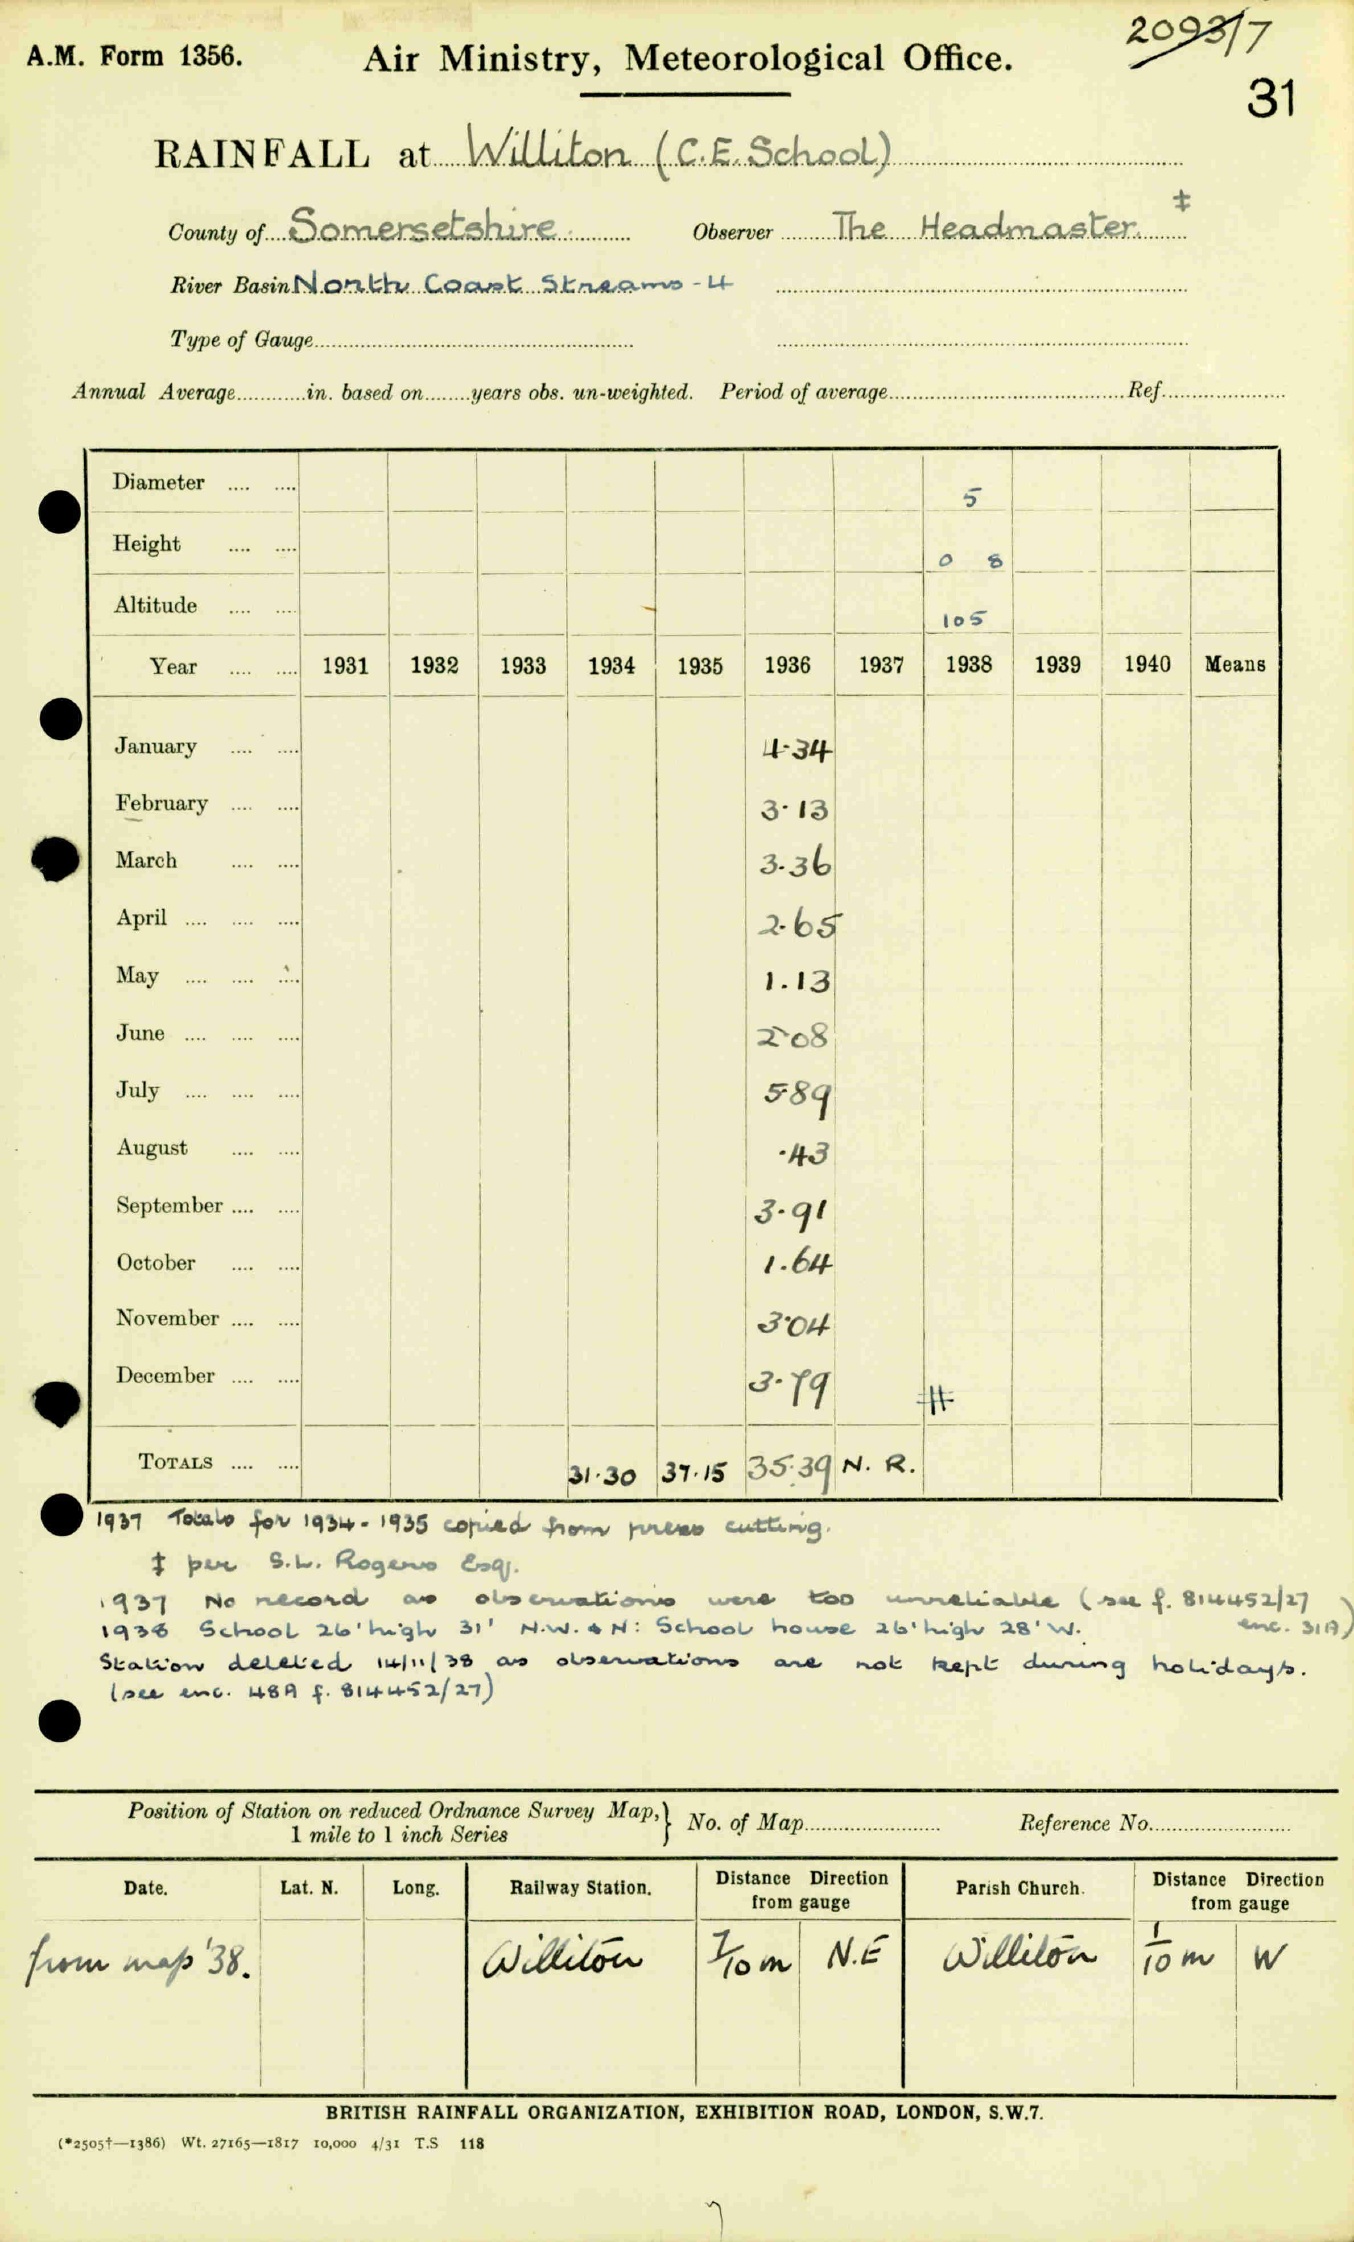 2093/7
A.M. Form 1356. Air Ministry, Meteorological Office.
31
RAINFALL at Williton (C.E. School)
County of Somersetshire Observer The Headmaster. ‡
River Basin North Coast Streams - 4
Type of Gauge
Annual Average in. based on years obs. un-weighted. Period of average Ref.
Diameter 5
Height 0 8
Altitude 105
Year 1931 1932 1933 1934 1935 1936 1937 1938 1939 1940 Means
January 4.34
February 3.13
March 3.36
April 2.65
May 1.13
June 2.08
July 5.89
August .43
September 3.91
October 1.64
November 3.04
December 3.79
TOTALS 31.30 37.15 35.39 N. R.
1937 Totals for 1934-1935 copied from press cutting.
‡ per S.L. Rogers Esq.
1937 No record as observations were too unreliable (see f. 814452/27
enc. 31A)
1938 School 26' high 31' N.W. & N: School house 26' high 28' W.
Station deleted 14/11/38 as observations are not kept during holidays.
(see enc. 48A f. 814452/27)
Position of Station on reduced Ordnance Survey Map, } No. of Map Reference No.
1 mile to 1 inch Series
Date. Lat. N. Long. Railway Station. Distance Direction from gauge Parish Church. Distance Direction from gauge
from map '38. Williton 7/10 m N.E Williton 1/10 m W
BRITISH RAINFALL ORGANIZATION, EXHIBITION ROAD, LONDON, S.W.7.
(*2505†—1386) Wt. 27165—1817 10,000 4/31 T.S 118